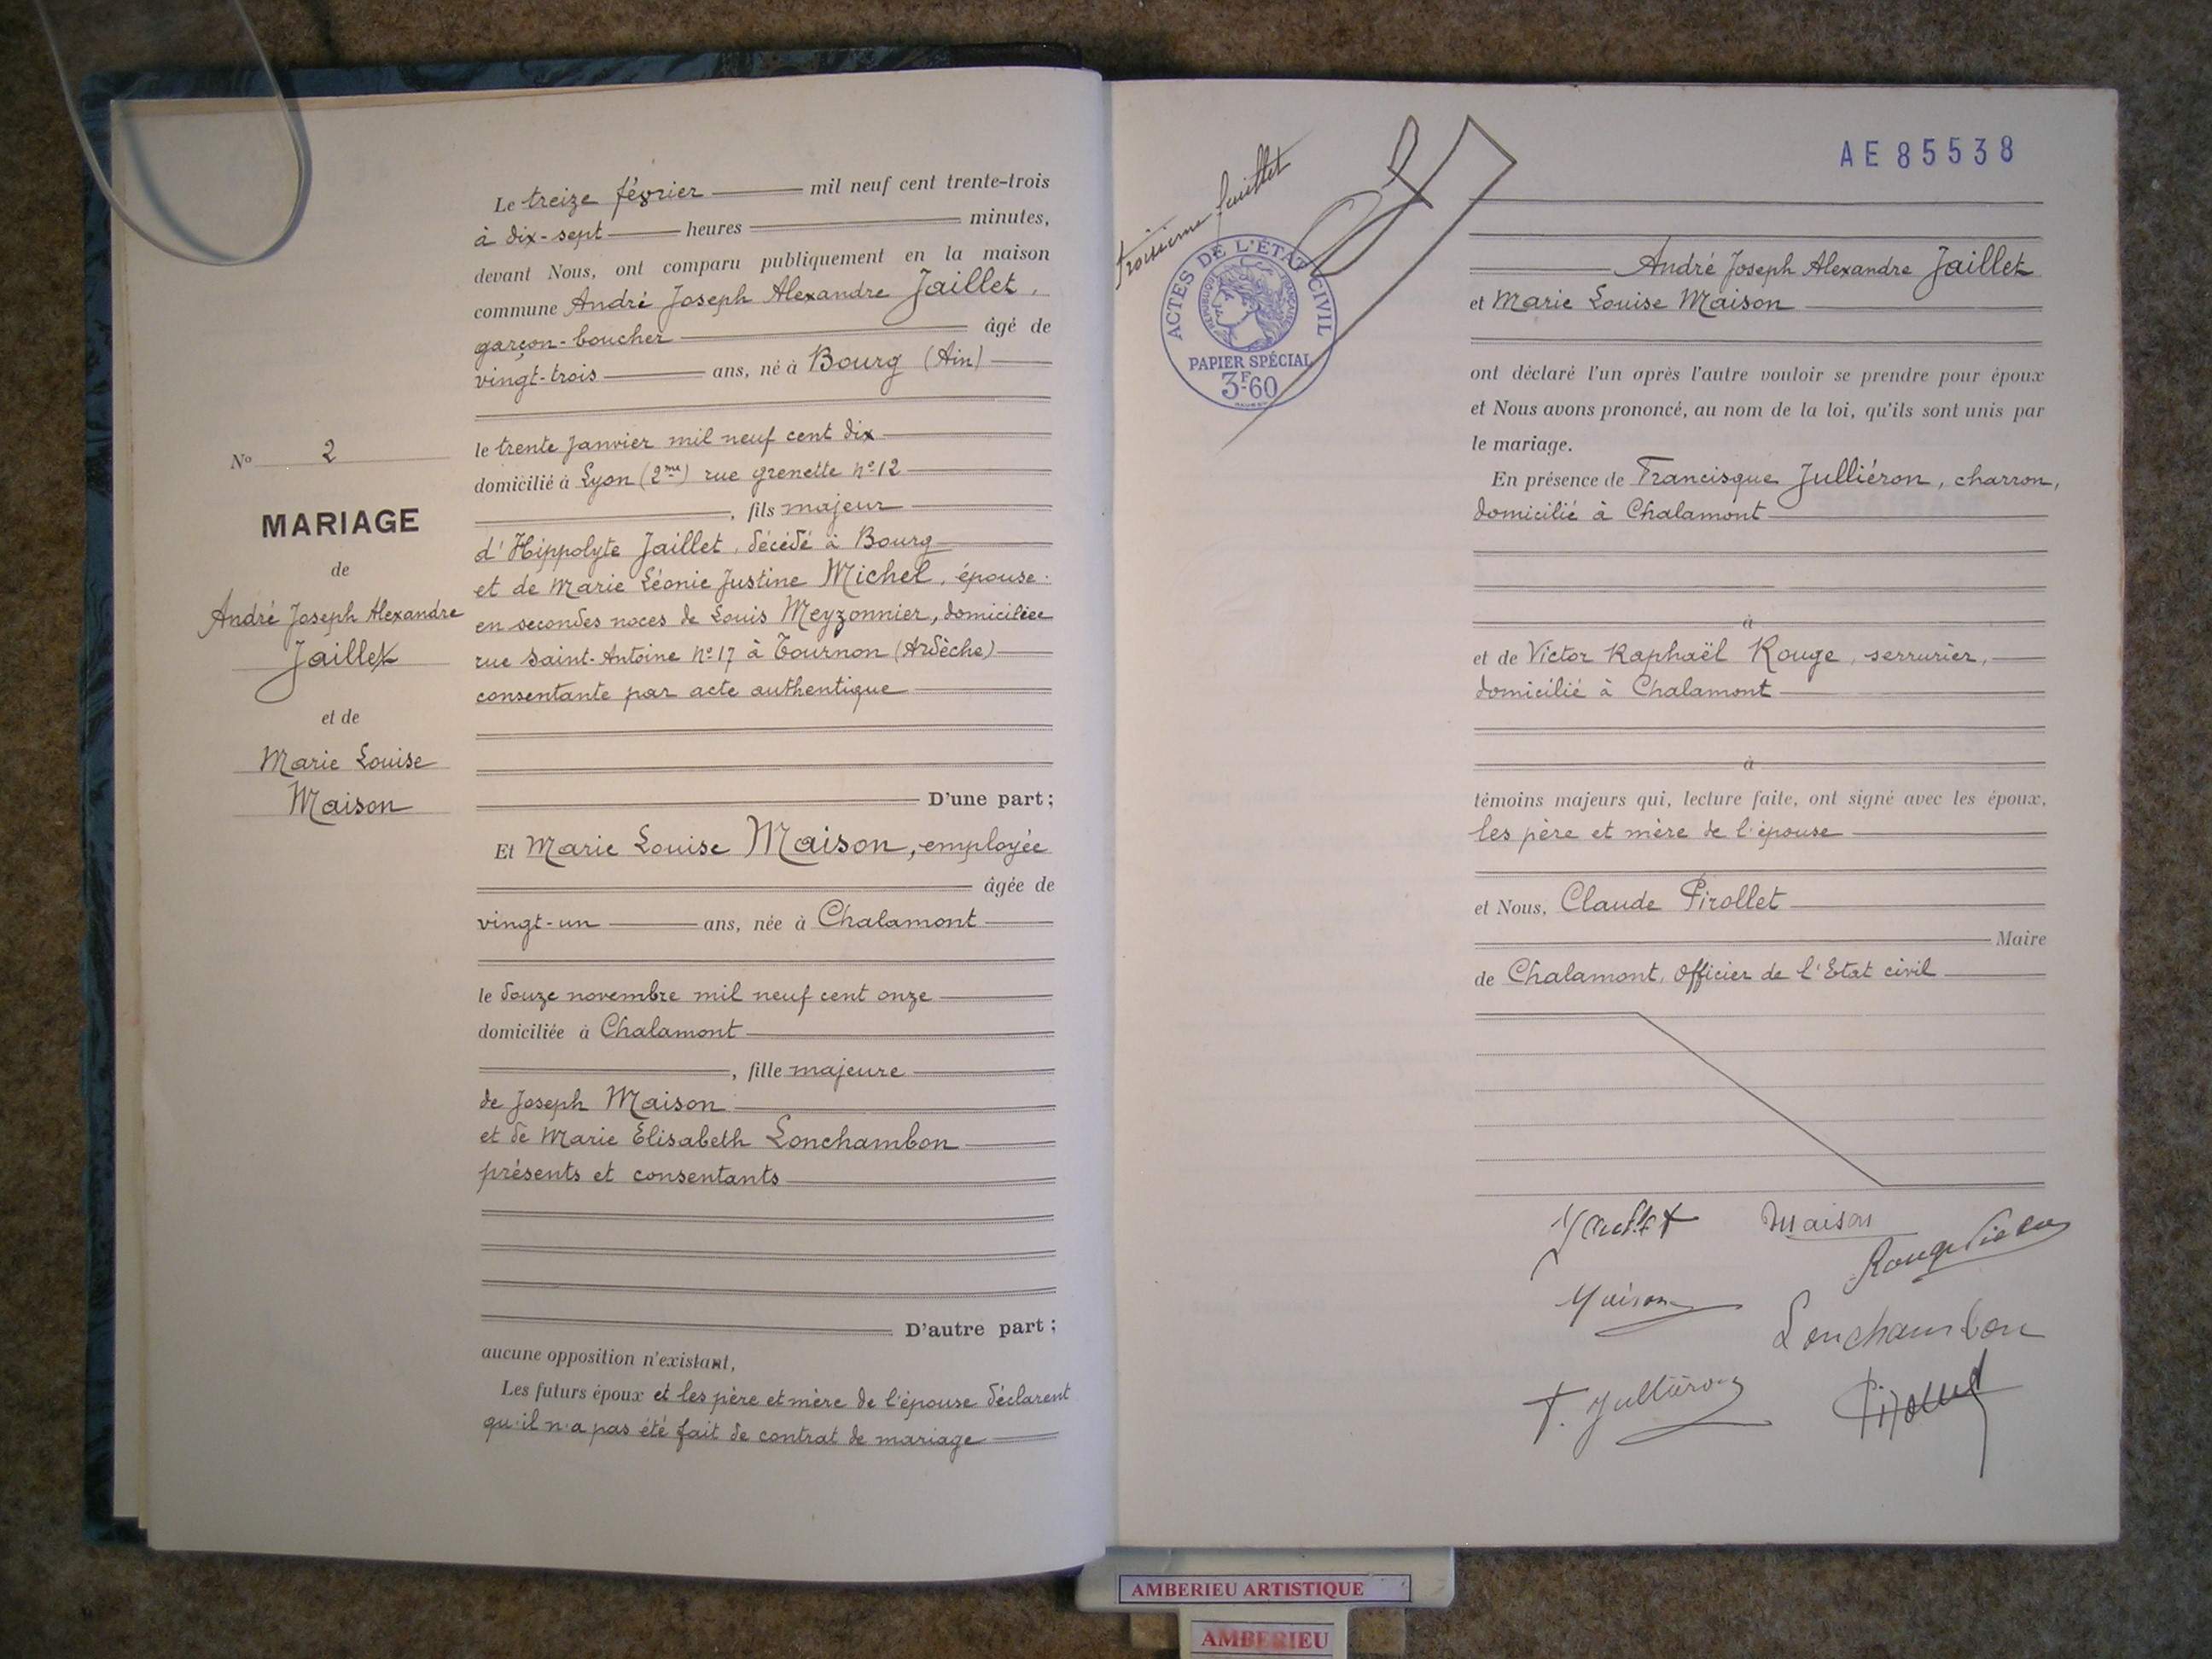 Le treize février mil neuf cent trente-trois
à dix-sept heures minutes,
devant Nous, ont comparu publiquement en la maison
commune André Joseph Alexandre Jaillet,
garçon-boucher âgé de
vingt-trois ans, né à Bourg (Ain)
le trente janvier mil neuf cent dix
domicilié à Lyon (2me) rue grenette no 12
, fils majeur
d'Hippolyte Jaillet, décédé à Bourg
et de Marie Léonie Justine Michel, épouse
en secondes noces de Louis Meyzonnier, domiciliée
rue Saint-Antoine no 17 à Tournon (Ardèche)
consentante par acte authentique
D'une part;
No 2
MARIAGE
de
André Joseph Alexandre
Jaillet
et de
Marie Louise
Maison
Et Marie Louise Maison, employée
âgée de
vingt-un ans, née à Chalamont
le douze novembre mil neuf cent onze
domiciliée à Chalamont
, fille majeure
de Joseph Maison
et de Marie Elisabeth Lonchambon
présents et consentants
D'autre part;
aucune opposition n'existant,
Les futurs époux et les père et mère de l'épouse déclarent
qu'il n'a pas été fait de contrat de mariage
troisième feuillet
ACTES DE L'ÉTAT CIVIL
RÉPUBLIQUE FRANÇAISE
PAPIER SPÉCIAL
3F60
AE85538
André Joseph Alexandre Jaillet
et Marie Louise Maison
ont déclaré l'un après l'autre vouloir se prendre pour époux
et Nous avons prononcé, au nom de la loi, qu'ils sont unis par
le mariage.
En présence de Francisque Julliéron, charron,
domicilié à Chalamont
à
et de Victor Raphaël Rouge, serrurier,
domicilié à Chalamont
à
témoins majeurs qui, lecture faite, ont signé avec les époux,
les père et mère de l'épouse
et Nous, Claude Pirollet
Maire
de Chalamont, Officier de l'Etat civil
Jaillet Maison
Rouge Victor
Maison
Lonchambon
F. Julliéron Pirollet
AMBERIEU ARTISTIQUE
AMBERIEU